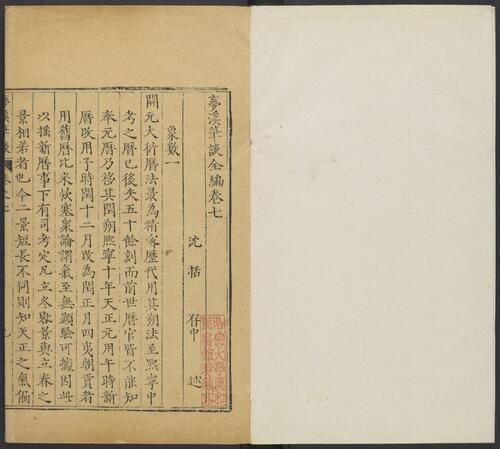 夢溪筆談全編卷七
沈括存中述
象數一
開元大衍曆法最為精密歷代用其朔法至熙寧中
考之曆已後天五十餘刻而前世曆官皆不能知
奉元曆乃移其閏朔熙寧十年天正元用午時新
曆改用子時閏十二月改為閏正月四夷朝貢者
用舊曆比來款塞衆論謂氣至無顯驗可據因此
以搖新曆事下有司考定凡立冬晷景與立春之
景相若者也今二景短長不同則知天正之氣偏